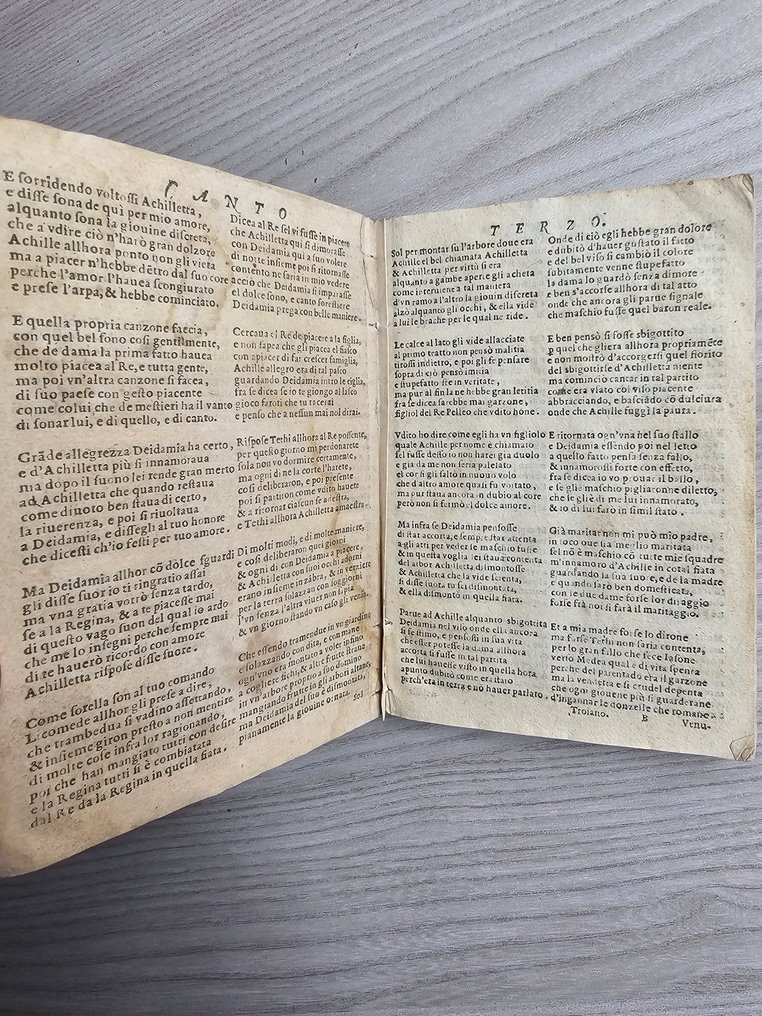 CANTO
E sorridendo voltossi Achilletta,
e disse sona de quì per mio amore,
alquanto sona la giouine discreta,
che a vdire ciò n'harò gran dolzore
Achille allhora ponto non gli vieta
ma a piacer n'hebbe dẽtro dal suo core
perche l'amor l'hauea scongiurato
e prese l'arpa, & hebbe cominciato.
E quella propria canzone faceia,
con quel bel sono così gentilmente,
che de dama la prima fatto hauea
molto piacea al Re, e tutta gente,
ma poi vn'altra canzon si facea,
di suo paese con gesto piacente
come colui che de mestieri ha il vanto
di sonar lui, e di quello, e di canto.
Grãde allegrezza Deidamia ha certo,
e d'Achilletta più si innamoraua
ma dopo il suono lei rende gran merto
ad Achilletta che quando restaua
come diuoto ben staua di certo,
la riuerenza, e poi si riuoltaua
a Deidamia, e dissegli al tuo honore
che dicesti ch'io festi per tuo amore.
Ma Deidamia allhor cõ dolce sguardi
gli disse suor io ti ringratio assai
ma vna gratia vorrò senza tardo,
se a la Regina, & a te piacesse mai
di questo vago suon del qual io ardo
che me lo insegni perche sempre mai
di te hauerò ricordo con amore
Achilletta rispose disse suore.
Come sorella son al tuo comando
Licomede allhor gli prese a dire,
che trambedua si vadino assettando,
& insieme giron presto a non mentire
di molte cose infra lor ragionando,
poi che han mangiato tutti con desire
e la Regina tutti si è combiatata
dal Re da la Regina in quella fiata,
Dicea al Re sel vi fusse in piacere
che Achilletta qui si dimorasse
con Deidamia qui a suo volere
di notte insieme poi si ritornasse
contento ne saria in mio vedere
acciò che Deidamia si imparasse
el dolce sono, e canto forestiere
Deidamia prega con belle maniere.
Cercaua el Re de piacere a la figlia,
e non sapea che giacea el fiasco
con apiacer di far crescer famiglia,
Achille allegro era di tal pasco
guardando Deidamia intro le ciglia,
fra se dicea se io te giongo al lasco
gioco faroti che tu tacerai
e penso che a nessun mai nol dirai.
Rispose Tethi allhora al Re possente,
per questo giorno mi perdonarete
sola non vo dormire certamente,
ma ogni dì ne la corte l'harete,
così deliberon, e poi presente
poi si partiron come vdito hauete
& a ritornar ciascun se adestra,
e Tethi allhora Achilletta amaestra.
Di molti modi, e di molte maniere,
e così deliberaron quei giorni
& ogni dì con Deidamia a piacere,
& Achilletta con suoi occhi adorni
erano insieme in zãbra, & in verziere
per la terra solazzan con lor giorni
l'vn senza l'altro viuer non sapia
& vn giorno stando vn caso gli venia,
Che essendo tramendue in vn giardino
e solazzando con dita, e con mane
ogn'vno era montato a voler in fino
a cogliere fichi, & altre frutte strane
in vn'arbore proprio a suo domino
mangiando frutte in gli arbori altane,
ma Deidamia del suo è dismontata,
pianamente la giouine ornata.
Sol
TERZO.
Sol per montar su l'arbore doue era
Achille el bel chiamata Achilletta
& Achilletta per virtù fiera
alquanto a gambe aperte gli acheta
come interuiene a tal maniera
d'vn ramo a l'altro la giouin discreta
alzò alquanto gli occhi, & ella vide
a lui le brache per le qual ne ride.
Le calce al lato gli vide allacciate
al primo tratto non pensò malitia
tirossi indietro, e poi gli fe pensare
sopra di ciò pensò imitia
e stupefatto ste in veritate,
ma pur al fin la ne hebbe gran letitia
fra se dicea sarebbe mai garzone,
figliol del Re Pelleo che vdito hone.
Vdito ho dite come egli ha vn figliolo
quale Achille per nome è chiamato
sel fusse desso io non harei già duolo
e già da me non seria palelato
el cor si gli falto in nuouo volo
che d'altro amore quasi fu voltato,
ma pur staua ancora in dubio al core
però non si fermò el dolce amore.
Ma infra se Deidamia pensosse
di star accorta, e sempre star attenta
a gli atti per veder se maschio fusse
& in quella voglia lei staua contenta
del arbor Achilletta dismontosse
& Achilletta che la vide scienta,
si disse suora tu sei dismontata,
& ella dismontò in quella fiata.
Parue ad Achille alquanto sbigottita
Deidamia nel viso onde ella ancora
si fe stimo, e pensossi in sua vita
che esser potesse ia dama allhora
accorta si fusse in tal partita
che lui hauesse visto in quella hora
apunto dubitò come era stato
perch'era in terra e no hauer parlato
Onde di ciò egli hebbe gran dolore
e dubitò d'hauer gustato il fatto
e del bel viso si cambiò il colore
subitamente venne stupefatto
la dama lo guardò senza dimore
e ben s'accorse allhora di tal atto
onde che ancora gli parue signale
che maschio fusse quel baron reale.
E ben pensò si fosse sbigottito
p quel che gli era allhora propriamẽte
e non moltò d'accorgersi quel fiorito
del sbigottirse d'Achilletta niente
ma comincio cantar in tal partito
come era visto col viso piacente
abbracciando, e basciãdo cõ dulciura
onde che Achille fuggì la paura.
E ritornata ogn'vna nel suo stallo
e Deidamia essendo poi nel letto
a quello fatto pensa senza fallo,
& innamorossi forte con effetto,
fra se dicea io vo prouar il ballo,
e se gliè maschio pigliaronne diletto,
che se gliè di me lui innamorato,
& io di lui farò in simil stato.
Già maritar non mi può mio padre,
in loco oue sia meglio maritata
sel nõ è maschio cõ tutte mie squadre
m'innamoro d'Achille in cotal fiata
guardando la sua suore, e de la madre
e quando sarò ben domesticata,
con le due dame forse lor disaggio
forse frà noi si farà il maritaggio.
Et a mia madre forse lo dirone
ma forse Tethi non saria contenta,
per lo gran fallo che fece Iasone
verso Medea qual è di vita spenta
perche del parentado era il garzone
ma la vendetta e sì crudel depenta
che ogni giouene più si guarderane
d'ingannar le donzelle che romane.
Troiano. B Venu-